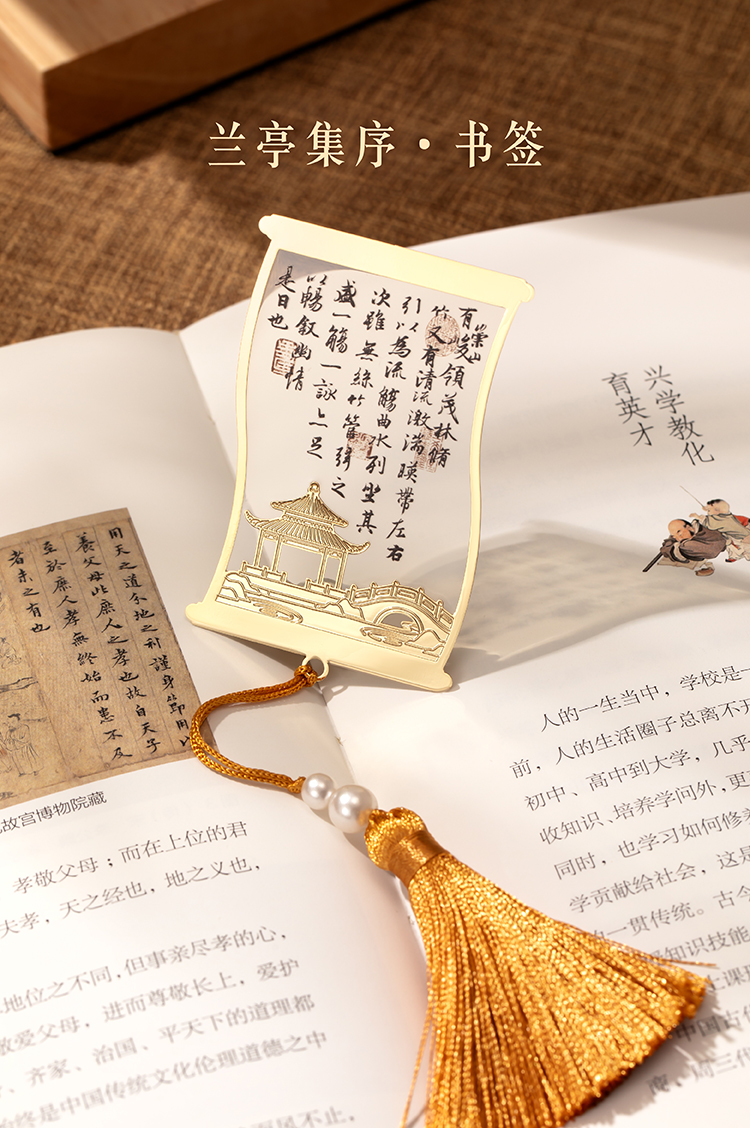 兰亭集序·书签
崇山
有峻領茂林脩
竹又有清流激湍暎帶左右
引以為流觴曲水列坐其
次雖無絲竹管弦之
盛一觴一詠亦足
以暢叙幽情
是日也
兴学教化
育英才
用天之道分地之利謹身節用以
養父母此庶人之孝也故自天子
至於庶人孝無終始而患不及
者未之有也
故宫博物院藏
孝敬父母；而在上位的君
夫孝，天之经也，地之义也，
地位之不同，但事亲尽孝的心，
敬爱父母，进而尊敬长上，爱护
、齐家、治国、平天下的道理都
始终是中国传统文化伦理道德之中
人的一生当中，学校是一
前，人的生活圈子总离不开
初中、高中到大学，几乎
收知识、培养学问外，更
同时，也学习如何修养
学贡献给社会，这是
的一贯传统。古今
知识技能
上课
中国古
周三代